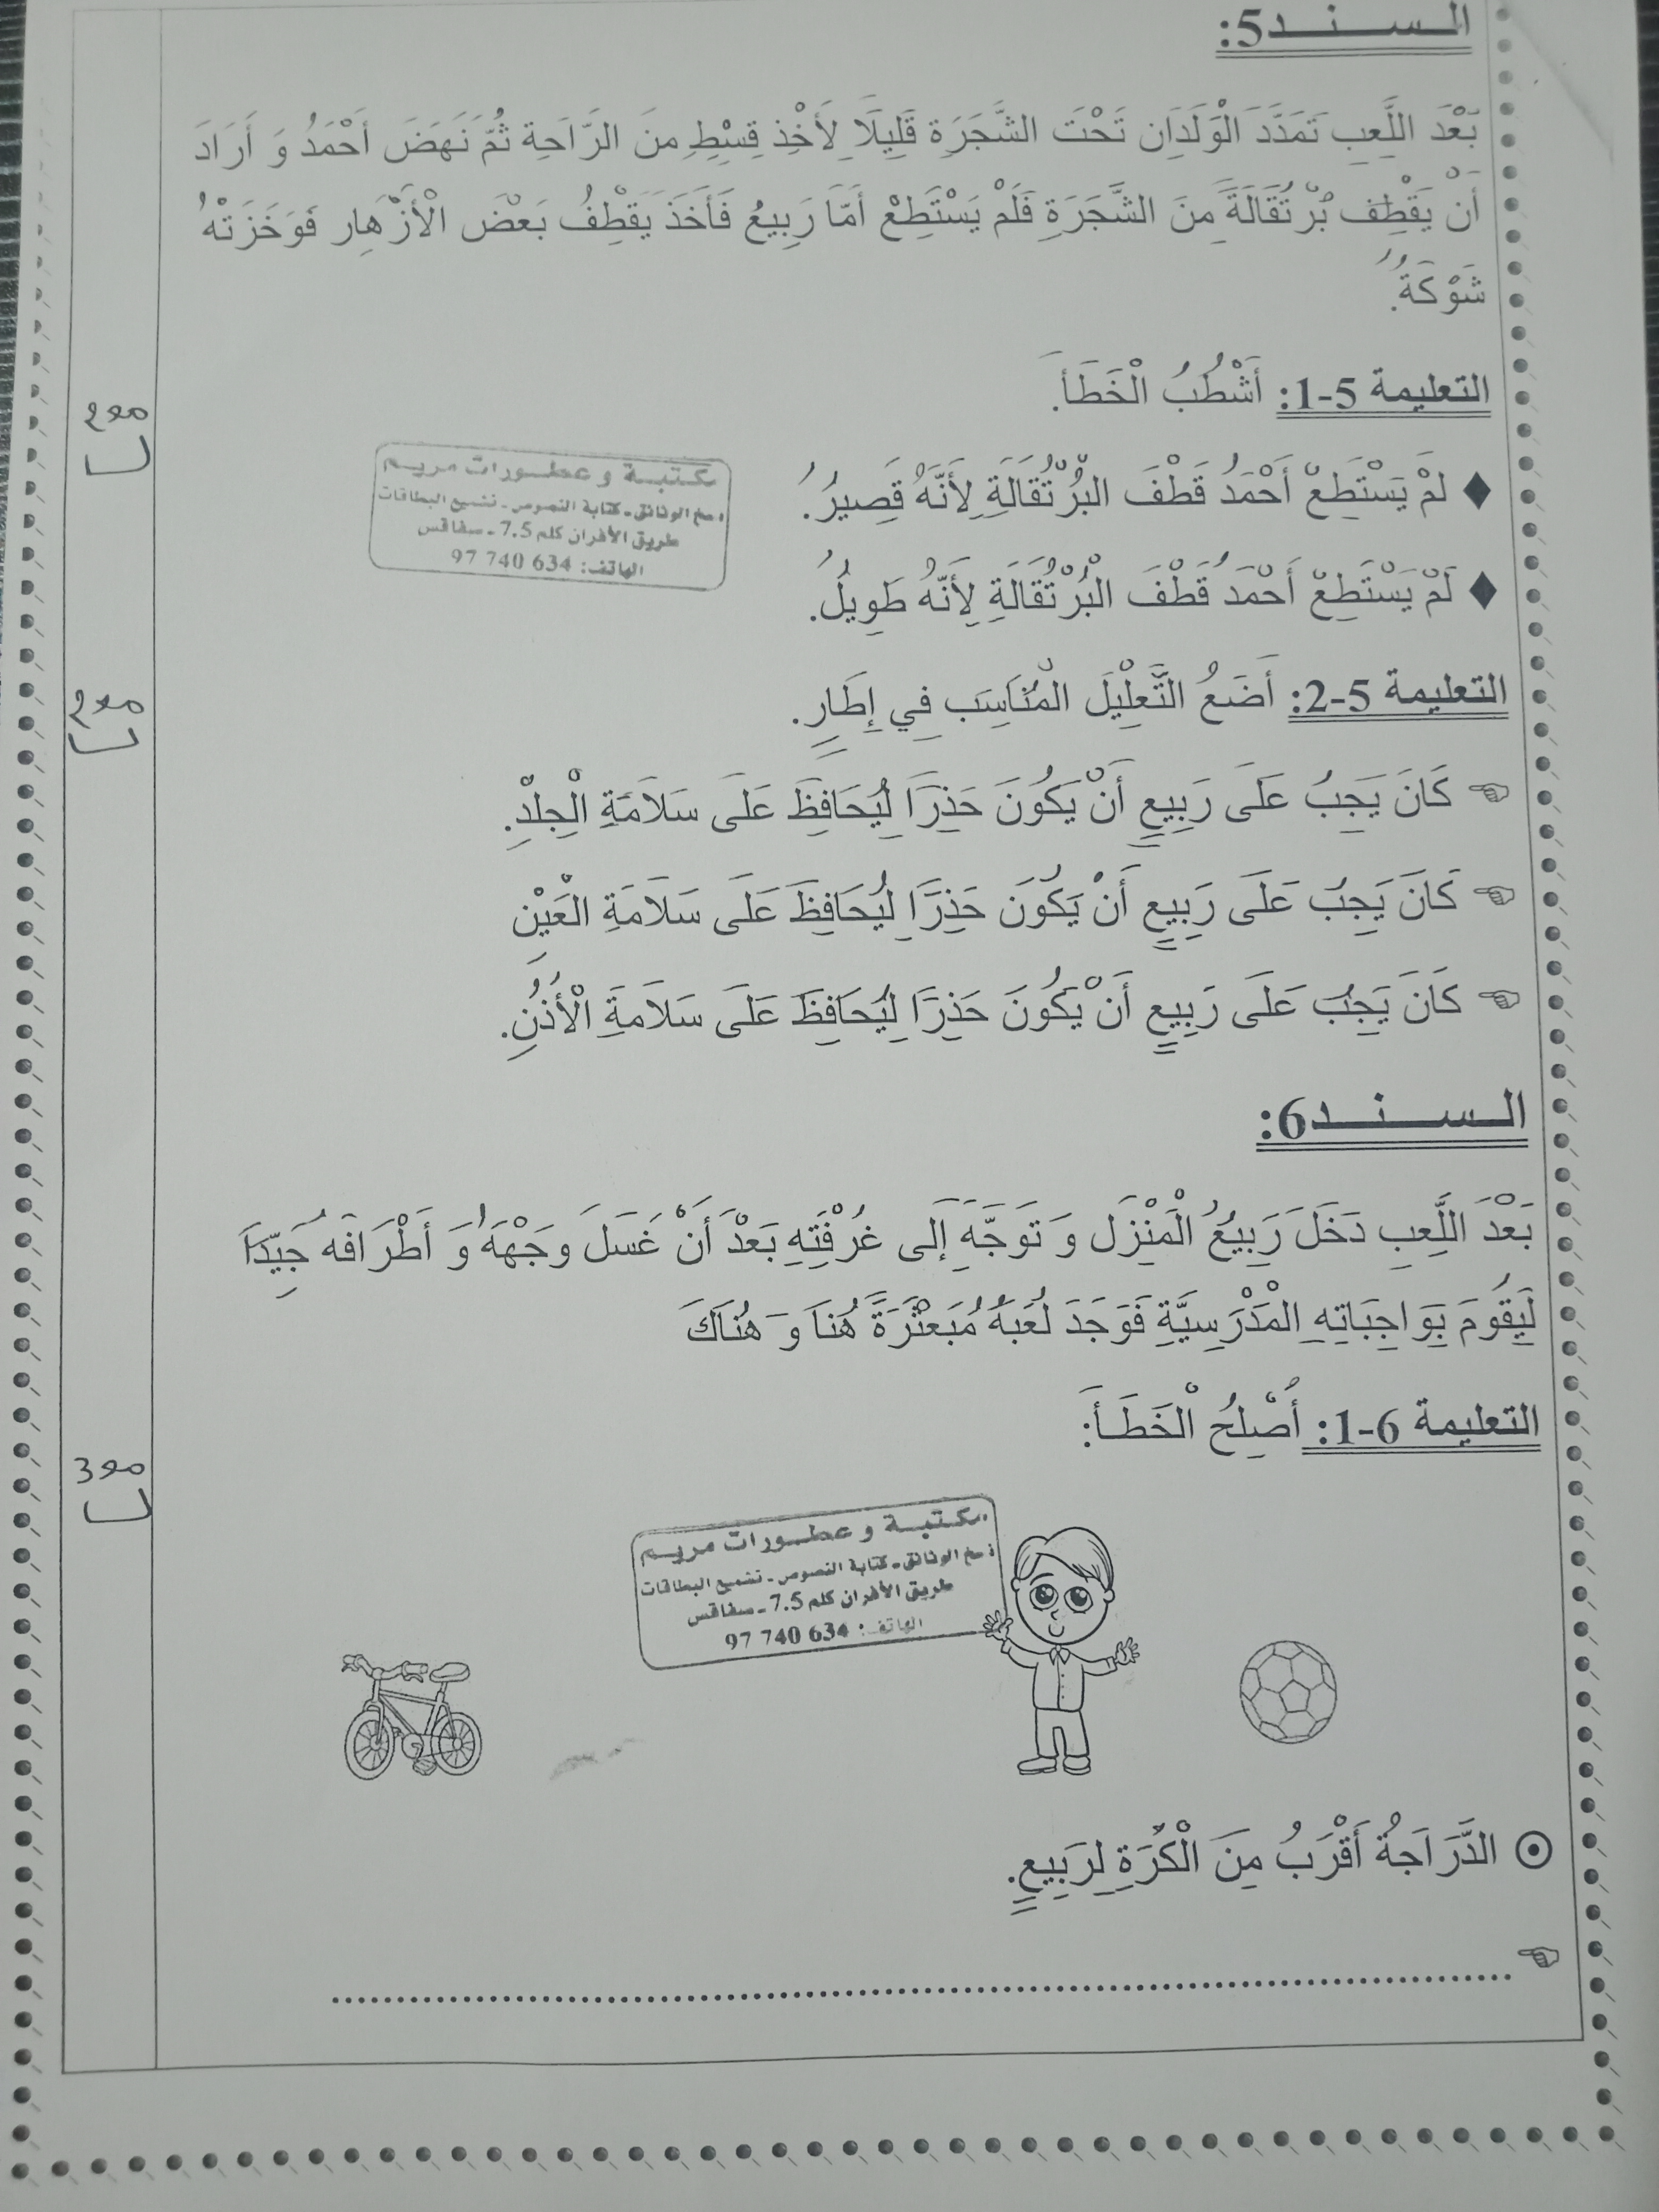 الـســـنـــد5:
بَعْدَ اللَّعِبِ تَمَدَّدَ الْوَلَدَانِ تَحْتَ الشَّجَرَةِ قَلِيلًا لِأَخْذِ قِسْطٍ مِنَ الرَّاحَةِ ثُمَّ نَهَضَ أَحْمَدُ وَ أَرَادَ
أَنْ يَقْطِفَ بُرْتُقَالَةً مِنَ الشَّجَرَةِ فَلَمْ يَسْتَطِعْ أَمَّا رَبِيعُ فَأَخَذَ يَقْطِفُ بَعْضَ الْأَزْهَارِ فَوَخَزَتْهُ
شَوْكَةٌ.
التعليمة 5-1: أَشْطُبُ الْخَطَأَ.
معع2
♦ لَمْ يَسْتَطِعْ أَحْمَدُ قَطْفَ البُرْتُقَالَةِ لِأَنَّهُ قَصِيرُ.
مكتبة و عطورات مريم
نسخ الوثائق - كتابة النصوص - تشميع البطاقات
طريق الأفران كلم 7.5 - سفاقس
الهاتف: 634 740 97
♦ لَمْ يَسْتَطِعْ أَحْمَدُ قَطْفَ الْبُرْتُقَالَةِ لِأَنَّهُ طَوِيلُ.
التعليمة 5-2: أَضَعُ التَّعْلِيلَ الْمُنَاسِبَ فِي إِطَارٍ.
كَانَ يَجِبُ عَلَى رَبِيعٍ أَنْ يَكُونَ حَذِرًا لِيُحَافِظَ عَلَى سَلَامَةِ الْجِلْدِ.
كَانَ يَجِبُ عَلَى رَبِيعٍ أَنْ يَكُونَ حَذِرًا لِيُحَافِظَ عَلَى سَلَامَةِ الْعَيْنِ
كَانَ يَجِبُ عَلَى رَبِيعٍ أَنْ يَكُونَ حَذِرًا لِيُحَافِظَ عَلَى سَلَامَةِ الْأُذُنِ.
الـســـنـــد6:
بَعْدَ اللَّعِبِ دَخَلَ رَبِيعُ الْمَنْزِلَ وَ تَوَجَّهَ إِلَى غُرْفَتِهِ بَعْدَ أَنْ غَسَلَ وَجْهَهُ وَ أَطْرَافَهُ جَيِّدًا
لِيَقُومَ بِوَاجِبَاتِهِ الْمَدْرَسِيَّةِ فَوَجَدَ لُعَبَهُ مُبَعْثَرَةً هُنَا وَ هُنَاكَ
التعليمة 6-1: أُصْلِحُ الْخَطَأَ:
مكتبة و عطورات مريم
نسخ الوثائق - كتابة النصوص - تشميع البطاقات
طريق الأفران كلم 7.5 - سفاقس
الهاتف: 634 740 97
الدَّرَاجَةُ أَقْرَبُ مِنَ الْكُرَةِ لِرَبِيعٍ.